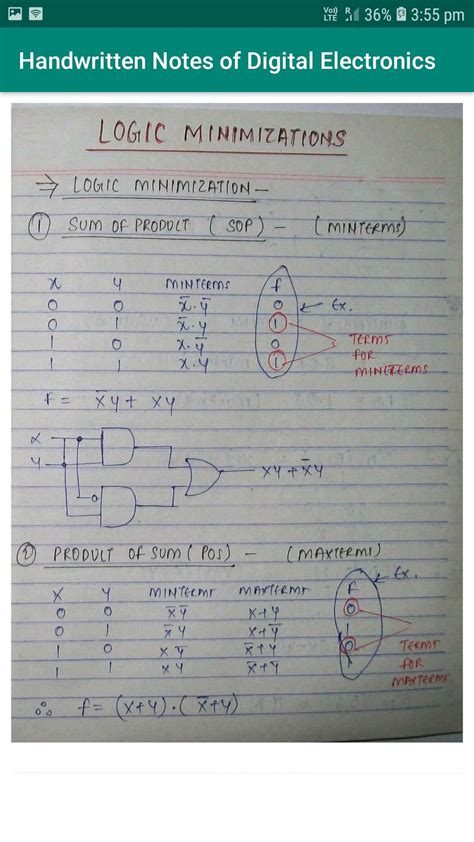 Vo) LTE R 36% 3:55 pm
Handwritten Notes of Digital Electronics
LOGIC MINIMIZATIONS
⇒ LOGIC MINIMIZATION -
① SUM OF PRODUCT ( SOP) - (MINTERMS)
x y MINTERMS f
0 0 x̅.y̅ 0 ← Ex.
0 1 x̅.y 1
1 0 x.y̅ 0
1 1 x.y 1
TERMS FOR MINETERMS
f = x̅y + xy
X
Y
XY + X̅Y
② PRODUCT OF SUM (POS) - (MAXTERM)
← Ex.
X Y MINTERMS MAXTERMS f
0 0 x̅y̅ x+y 0
0 1 x̅y x+y̅ 1
1 0 xy̅ x̅+y 0
1 1 xy x̅+y̅ 1
TERMS FOR MAXTERMS
∴ f = (x+y).(x̅+y)